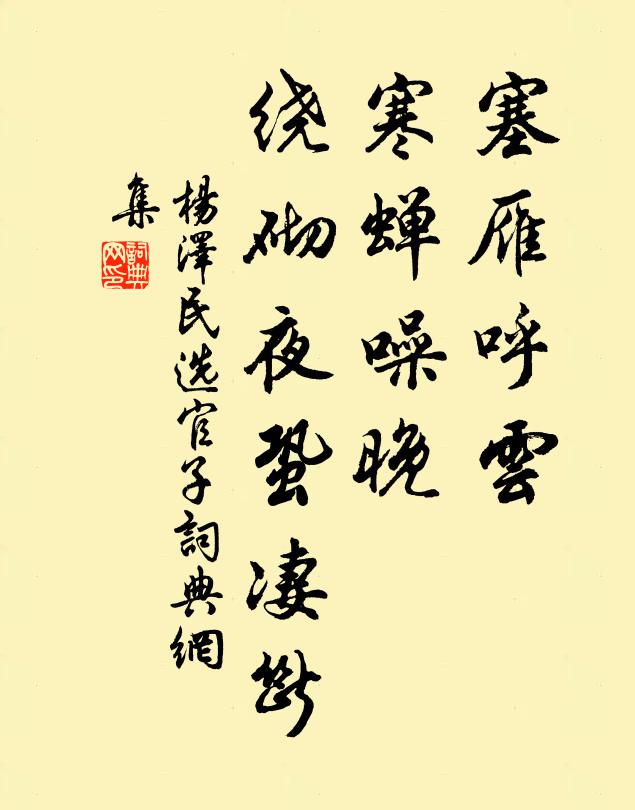 塞雁呼雲
寒蝉噪晚
绕砌夜蛩凄斷
楊澤民选官子詞典網
集
詞典
网印